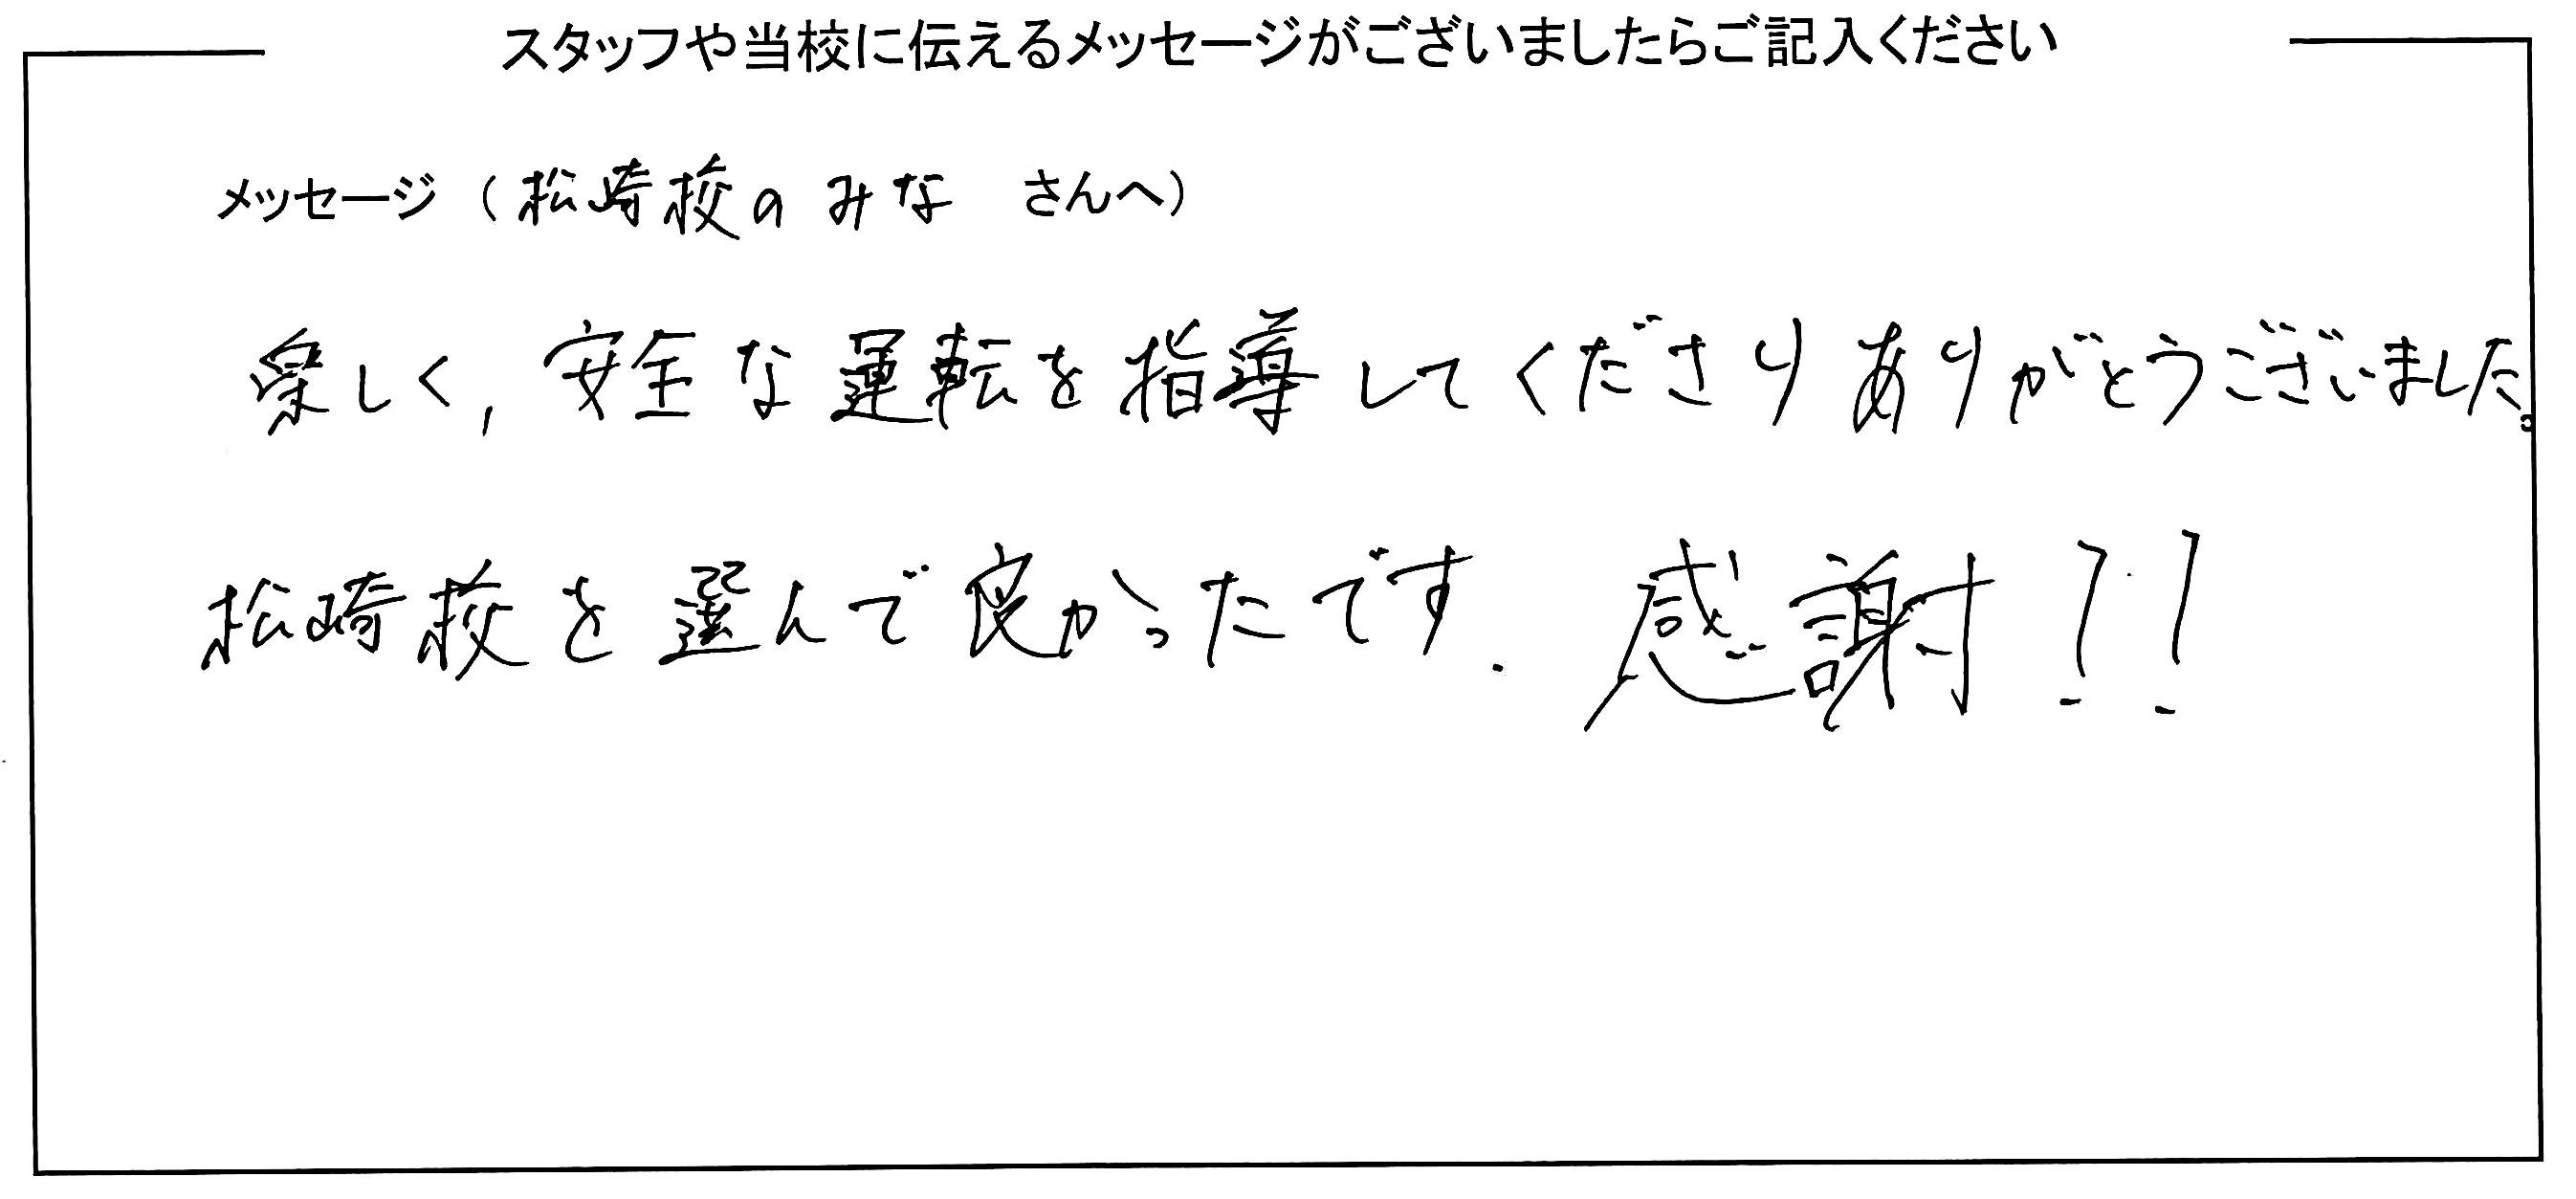 スタッフや当校に伝えるメッセージがございましたらご記入ください
メッセージ（松崎校のみな さんへ）
楽しく,安全な運転を指導してくださりありがとうございました。
松崎校を選んで良かったです. 感謝!!